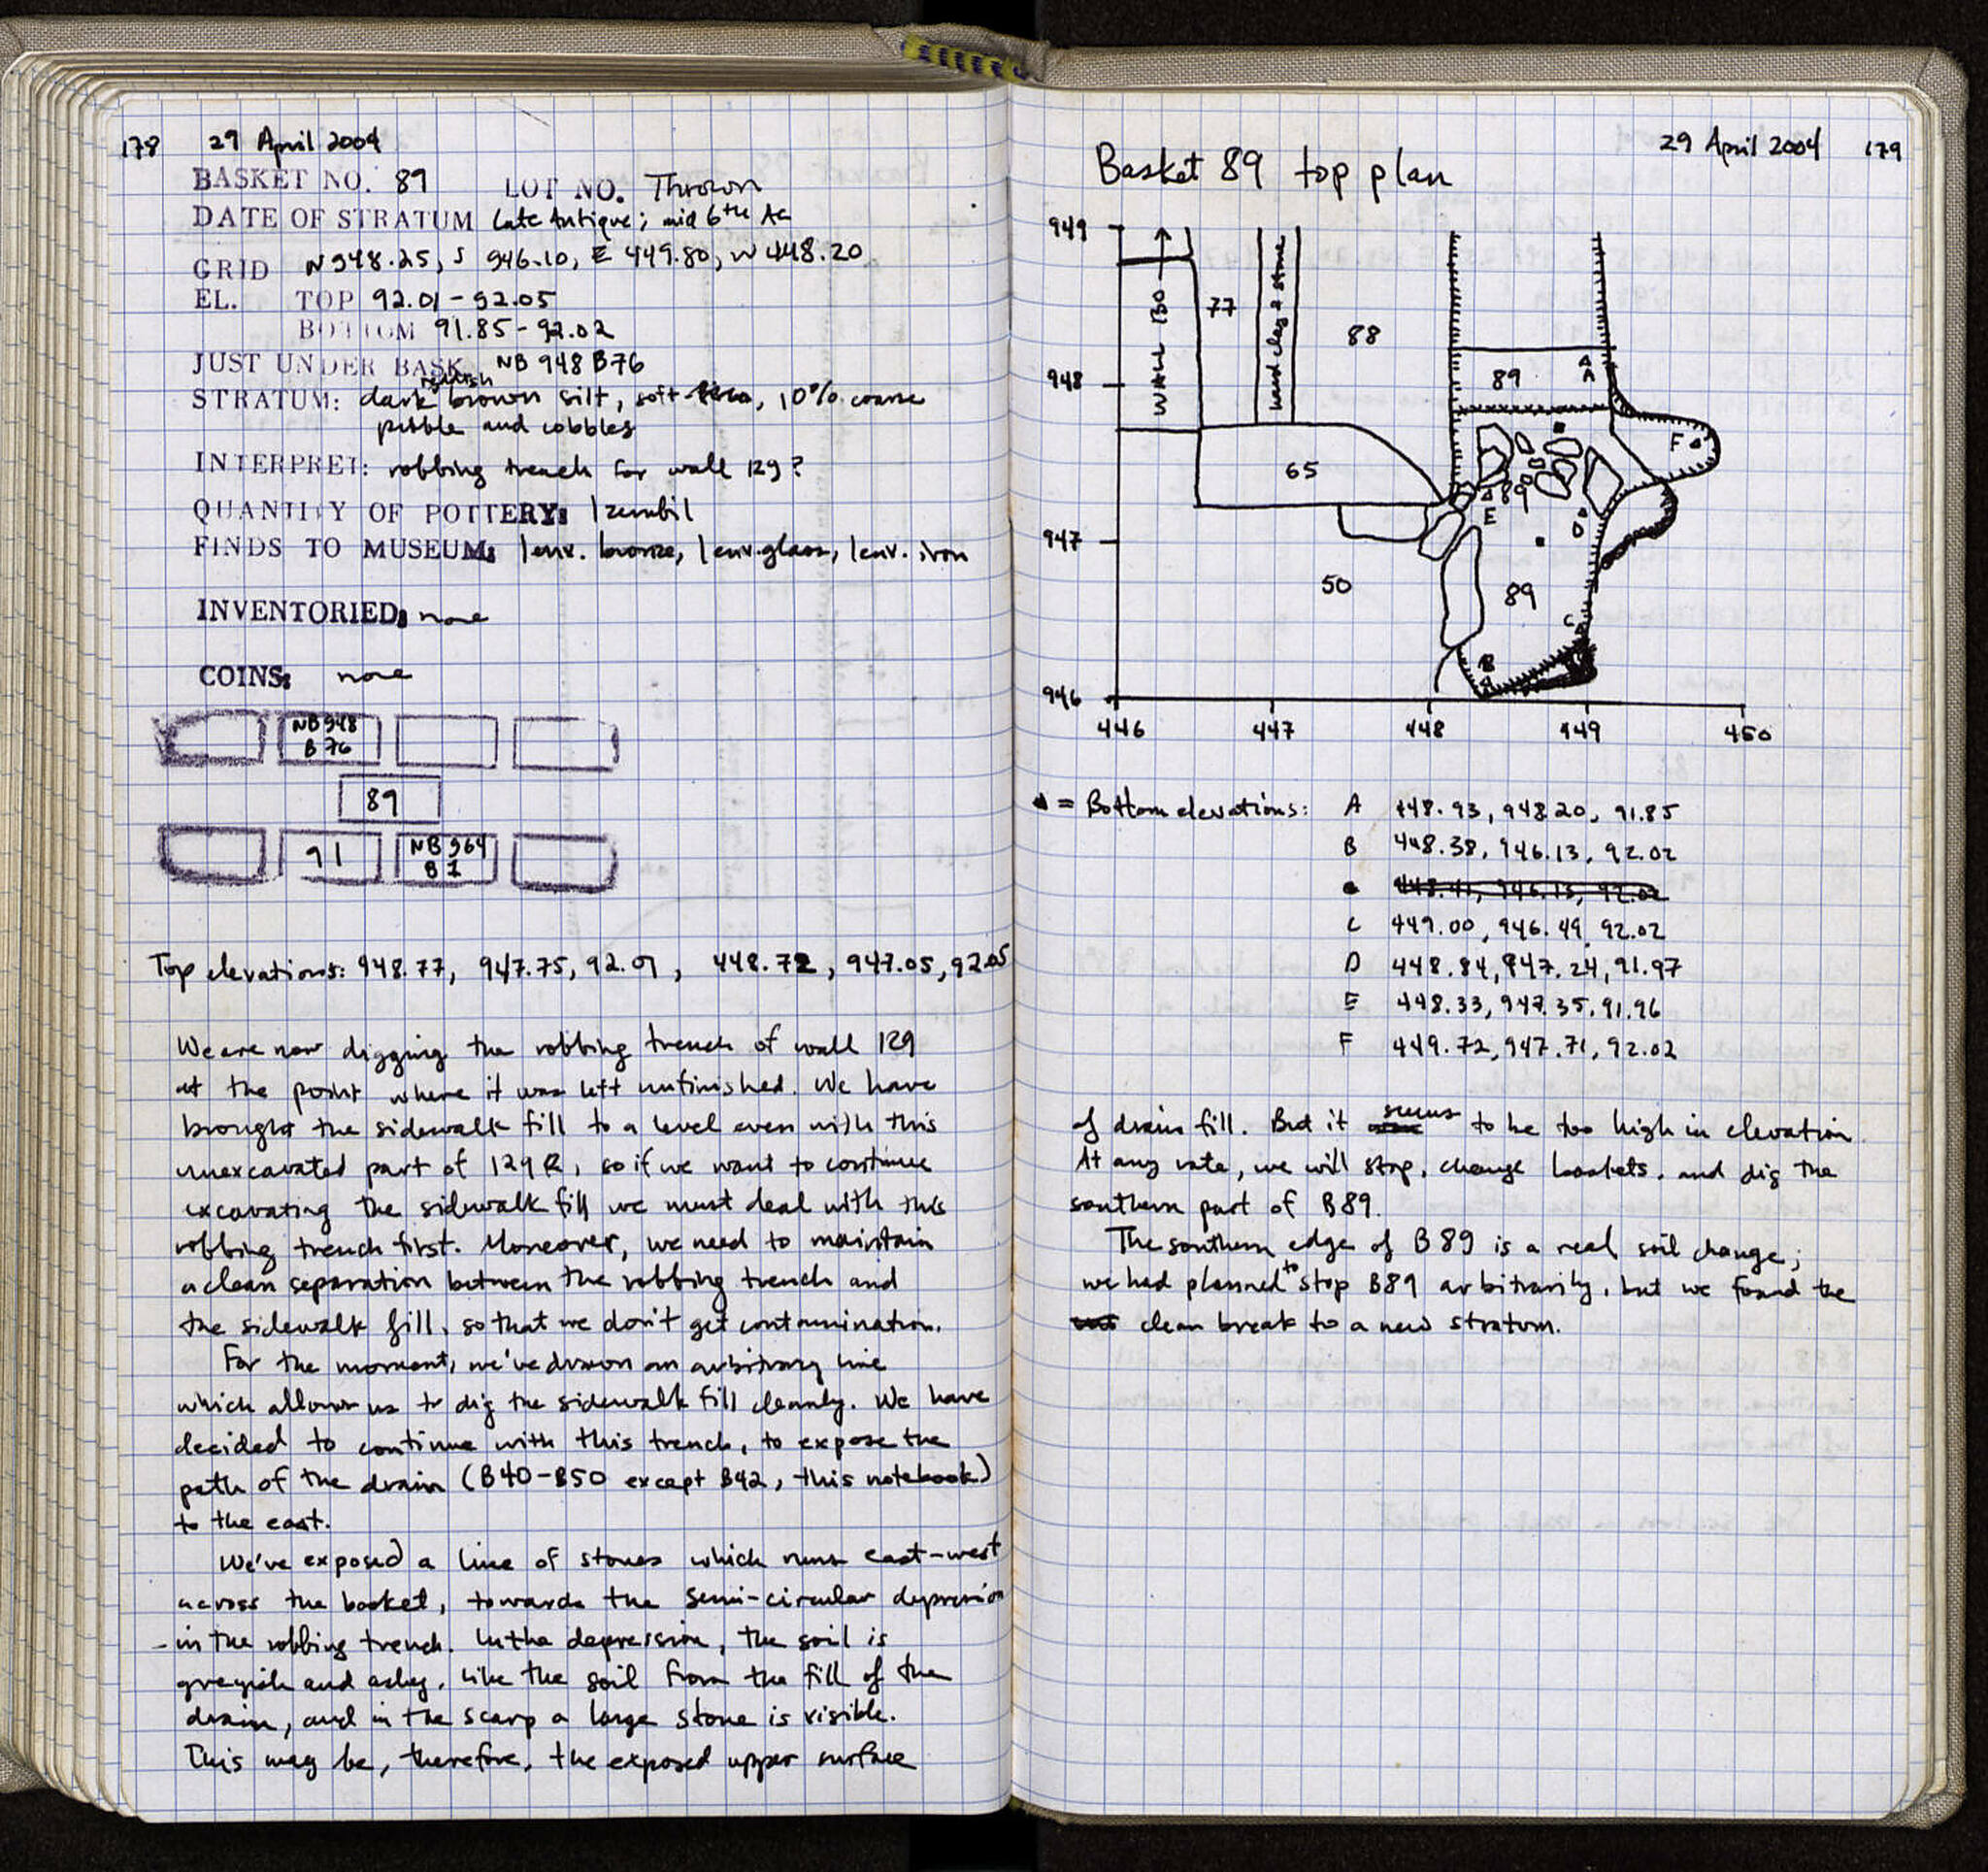 178 29 April 2004
BASKET NO. 89 LOT NO. Thrown
DATE OF STRATUM Late Antique; mid 6th AC
GRID N 948.25, S 946.10, E 449.80, W 448.20
EL. TOP 92.01-92.05
BOTTOM 91.85-92.02
JUST UNDER BASK. NB 948 B76
STRATUM: dark reddish brown silt, soft, 10% coarse
pebble and cobbles
INTERPRET: robbing trench for wall 129?
QUANTITY OF POTTERY: 1 zembil
FINDS TO MUSEUM: 1 env. bronze, 1 env. glass, 1 env. iron
INVENTORIED: none
COINS: none
NB 948
B 76
89
91 NB 964
B 1
Top elevations: 948.77, 947.75, 92.01, 448.72, 947.05, 92.05
We are now digging the robbing trench of wall 129
at the point where it was left unfinished. We have
brought the sidewalk fill to a level even with this
unexcavated part of 129R, so if we want to continue
excavating the sidewalk fill we must deal with this
robbing trench first. Moreover, we need to maintain
a clean separation between the robbing trench and
the sidewalk fill, so that we don't get contamination.
For the moment, we've drawn an arbitrary line
which allows us to dig the sidewalk fill cleanly. We have
decided to continue with this trench, to expose the
path of the drain (B40-B50 except B42, this notebook)
to the east.
We've exposed a line of stones which runs east-west
across the basket, towards the semi-circular depression
in the robbing trench. In the depression, the soil is
greyish and ashy, like the soil from the fill of the
drain, and in the scarp a large stone is visible.
This may be, therefore, the exposed upper surface
29 April 2004 179
Basket 89 top plan
949
948
947
946
446 447 448 449 450
WALL 130
77
hard clay & stone
88
89
A
65
F
89
E
D
50
89
C
B
= Bottom elevations: A 448.93, 948.20, 91.85
B 448.38, 946.13, 92.02
448.41, 946.13, 92.02
C 449.00, 946.49, 92.02
D 448.84, 947.24, 91.97
E 448.33, 947.35, 91.96
F 449.72, 947.71, 92.02
of drain fill. But it seems to be too high in elevation.
At any rate, we will stop, change baskets, and dig the
southern part of B89.
The southern edge of B89 is a real soil change;
we had planned to stop B89 arbitrarily, but we found the
clean break to a new stratum.